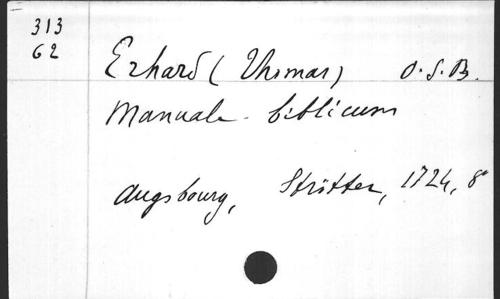 313
62
Erhard (Thomas) O.S.B.
Manuale biblicum
Augsbourg, Strötter, 1724, 8°